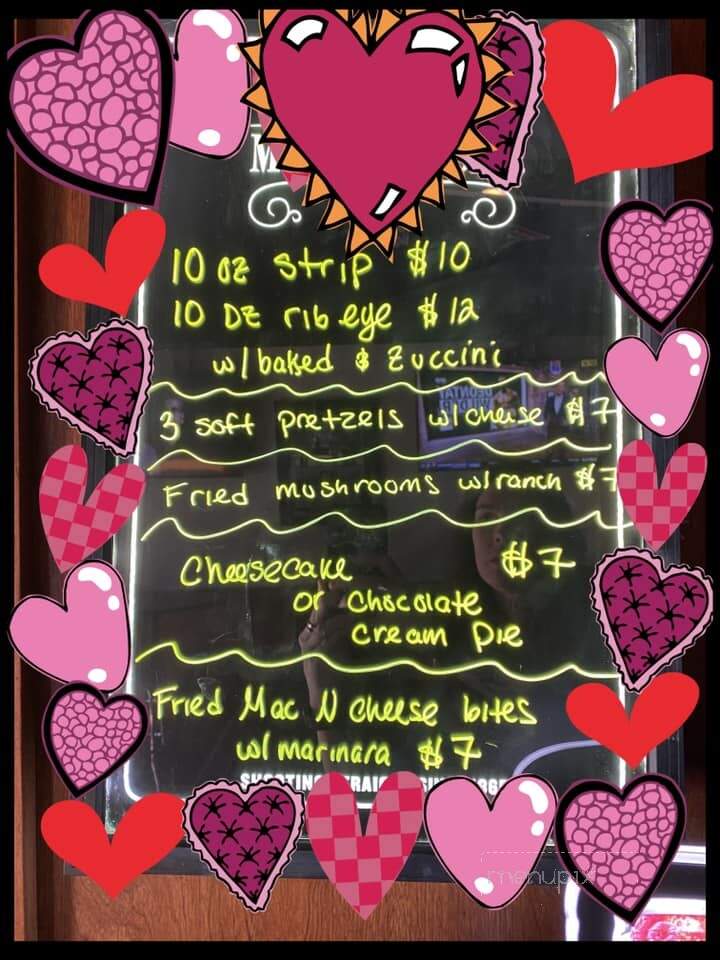 10 oz strip $10
10 oz rib eye $12
w/ baked & zuccini
3 soft pretzels w/ cheese $7
Fried mushrooms w/ ranch $7
Cheesecake $7
or Chocolate
Cream Pie
Fried Mac N cheese bites
w/ marinara $7
menupix